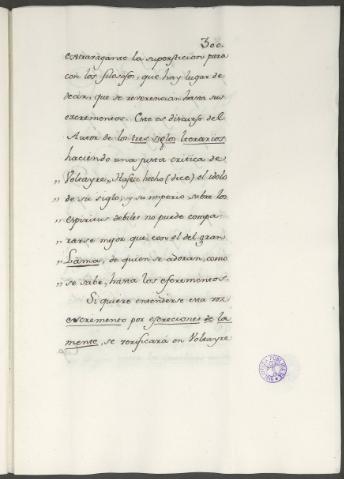 300.
extravagante la supersticion para
con los filosofos, que hay lugar de
decir, que se reverencian hasta sus
excrementos. Este es discurso del
Autor de los tres siglos literarios
haciendo una justa critica de
Voltayre, hecho (dice) el idolo
de su siglo, y su imperio sobre los
espiritus debiles no puede compa
rarse mejor que con el del gran
Lama, de quien se adoran, como
se sabe, hasta los escrementos.
Si quiere entenderse esta voz
escremento por escreciones de la
mente, se verificará en Voltayre